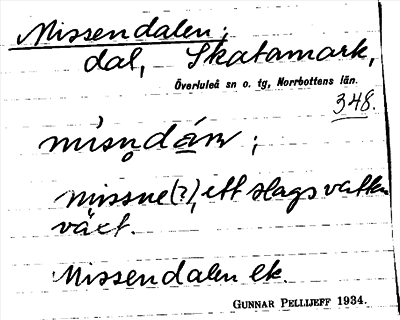 Missendalen;
dal, Skatamark,
Överluleå sn o. tg, Norrbottens län.
348.
mìsn̥dán ;
missne(?), ett slags vatten
växt.
Missendalen ek.
GUNNAR PELLIJEFF 1934.